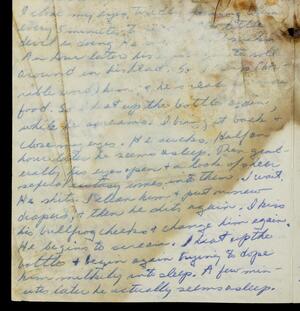 I close my eyes
every 5 minutes to
devil is doing. He
An hour later his to roll
around in his head. So
rable word) him, & he's ready
food. So I heat up the bottle again,
while he screams. I bring it back &
close my eyes. He sucks. Half an
hour later he seems asleep. Then
his eyes open & a look of sheer
ecstasy comes into them. I wait.
He shits. I clean him & put on new
diapers, & then he shits again. I kiss
his bullfrog cheeks & change him again.
He begins to scream. I heat up the
bottle & begin again trying to dope
him milkily into sleep. A few min-
utes later he actually seems asleep.